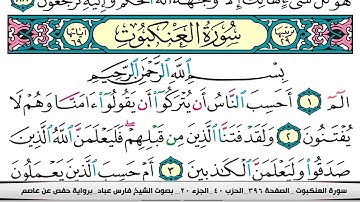 هُوَ كُلُّ شَىْءٍ هَالِكٌ إِلَّا وَجْهَهُۥ لَهُ ٱلْحُكْمُ وَإِلَيْهِ تُرْجَعُونَ
ترتيبها ٢٩ سُورَةُ الْعَنْكَبُوتِ آياتها ٦٩
بِسْمِ ٱللَّهِ ٱلرَّحْمَٰنِ ٱلرَّحِيمِ
الٓمٓ ١ أَحَسِبَ ٱلنَّاسُ أَن يُتْرَكُوٓا۟ أَن يَقُولُوٓا۟ ءَامَنَّا وَهُمْ لَا
يُفْتَنُونَ ٢ وَلَقَدْ فَتَنَّا ٱلَّذِينَ مِن قَبْلِهِمْ ۖ فَلَيَعْلَمَنَّ ٱللَّهُ ٱلَّذِينَ
صَدَقُوا۟ وَلَيَعْلَمَنَّ ٱلْكَٰذِبِينَ ٣ أَمْ حَسِبَ ٱلَّذِينَ يَعْمَلُونَ
سورة العنكبوت _ الصفحة ٣٩٦_الحزب ٤٠_الجزء ٢٠_ بصوت الشيخ فارس عباد_ برواية حفص عن عاصم